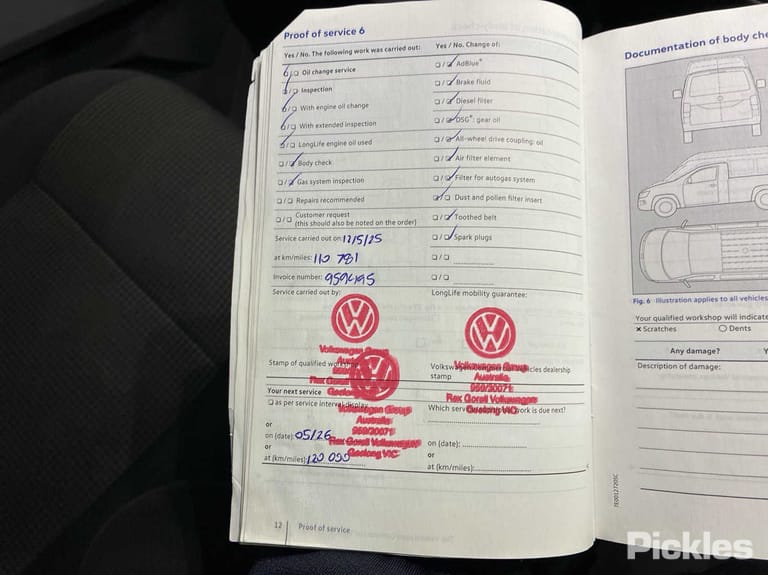 Proof of service 6
Yes / No. The following work was carried out:
Oil change service
Inspection
With engine oil change
With extended inspection
LongLife engine oil used
Body check
Gas system inspection
Repairs recommended
Customer request
(this should also be noted on the order)
Service carried out on: 12/5/25
at km/miles: 110 781
Invoice number:
Service carried out by:
Stamp of qualified
Your next service
as per service interval display
or
on (date): 05/26
or
at (km/miles): 120 000
Yes / No. Change of:
AdBlue®
Brake fluid
Diesel filter
DSG®: gear oil
All-wheel drive coupling: oil
Air filter element
Filter for autogas system
Dust and pollen filter insert
Toothed belt
Spark plugs
LongLife mobility guarantee:
Volkswagen Group
Australia
959/20071
Rex Gorell Volkswagen
Geelong VIC
stamp
Which work is due next?
on (date):
or
at (km/miles):
Volkswagen Group
Australia
959/20071
Rex Gorell Volkswagen
Geelong VIC
12 Proof of service
Documentation of body che
Fig. 6 Illustration applies to all vehicles
Your qualified workshop will indicate
× Scratches O Dents
Any damage? Y
Description of damage:
Pickles